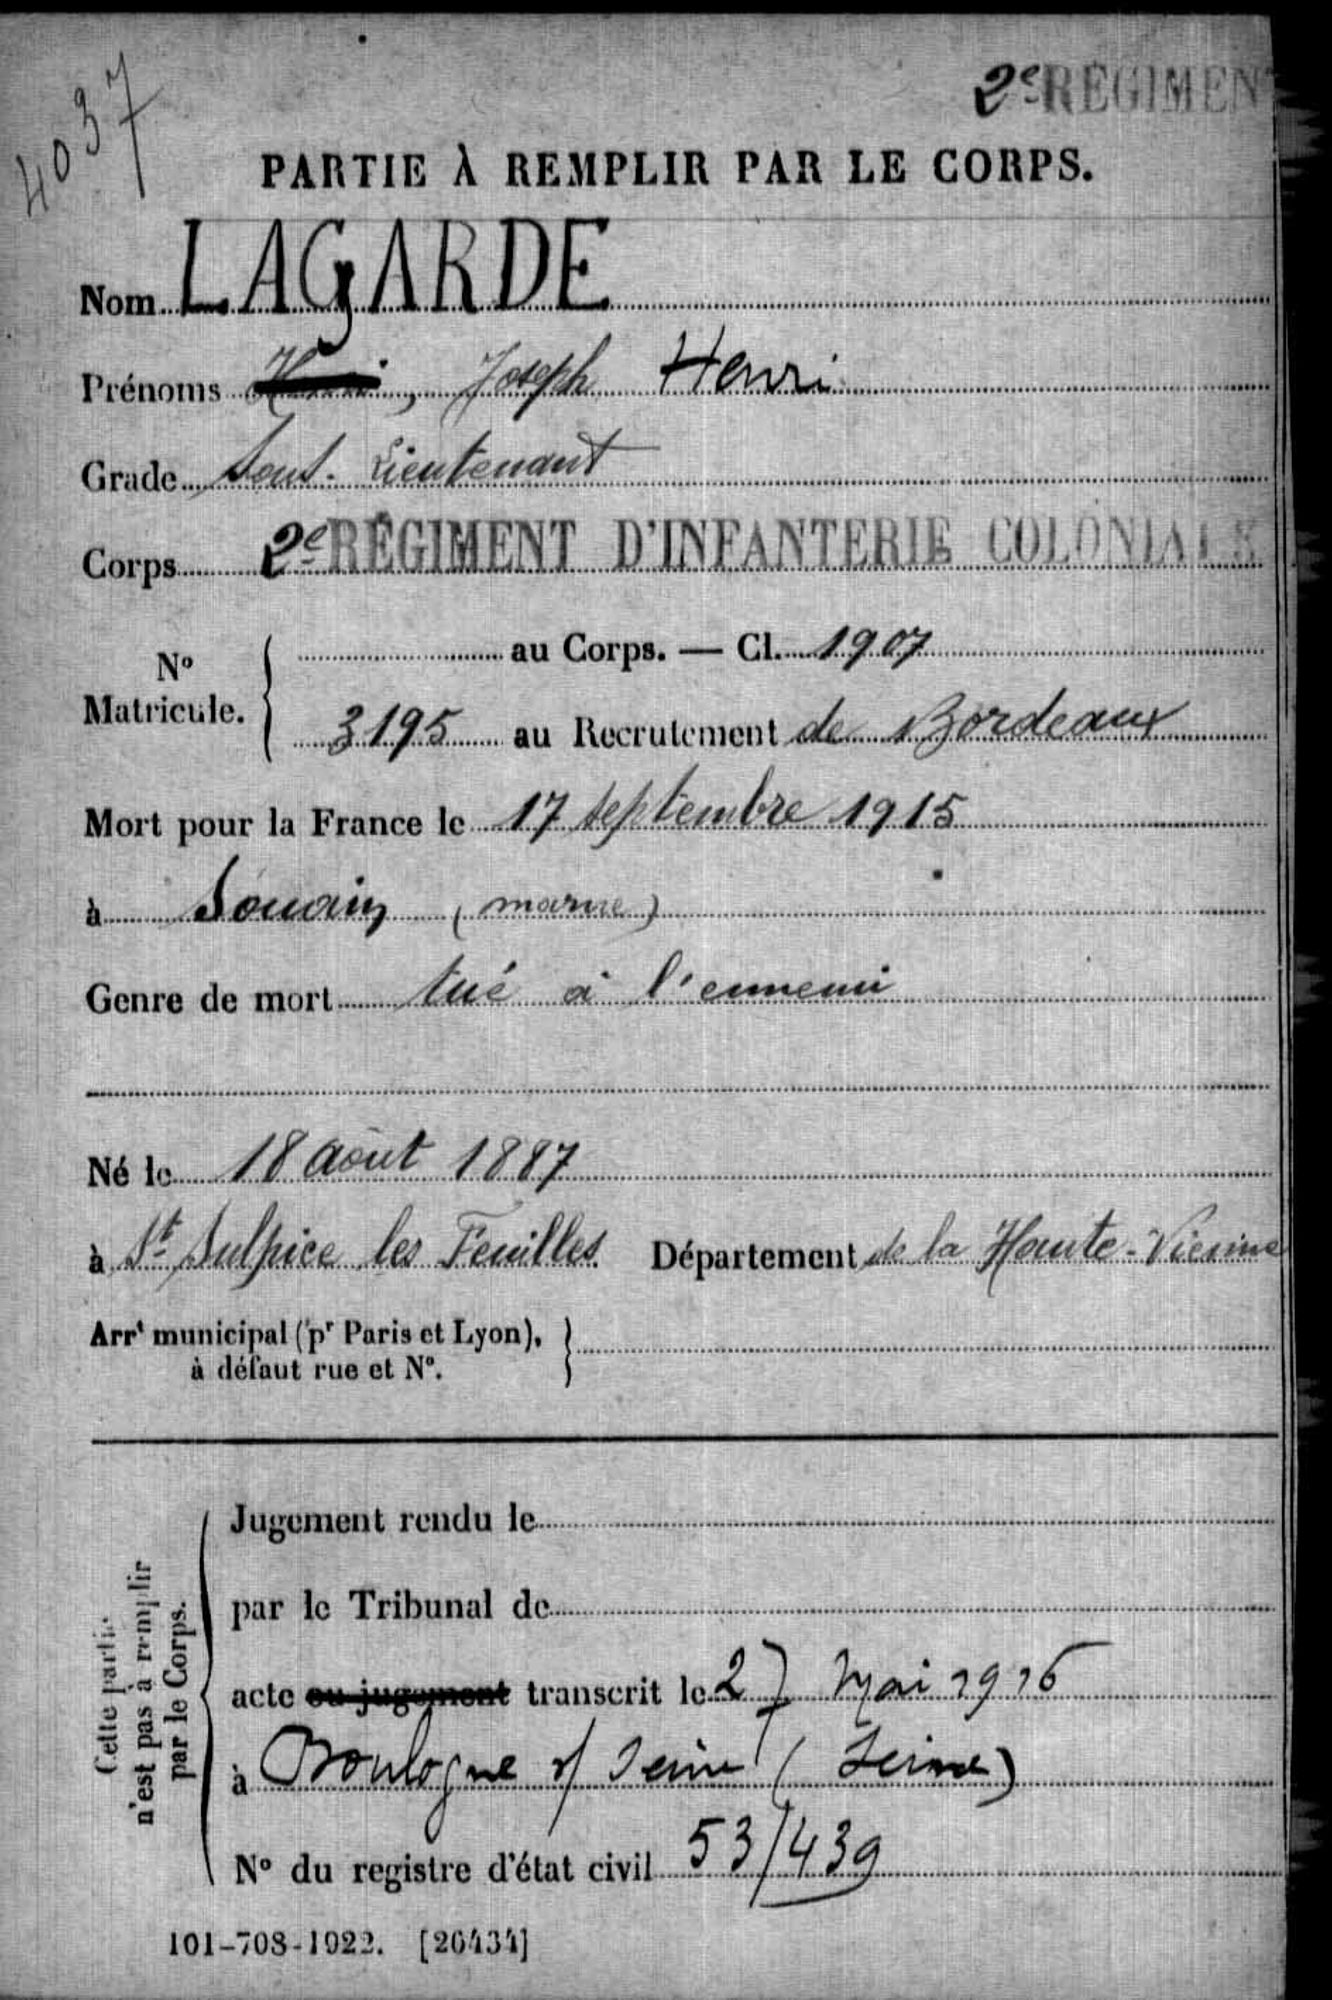 4037
2e RÉGIMEN
PARTIE À REMPLIR PAR LE CORPS.
Nom LAGARDE
Prénoms Henri, Joseph Henri
Grade Sous-Lieutenant
Corps 2e RÉGIMENT D'INFANTERIE COLONIALE
No Matricule. { au Corps. — Cl. 1907
3195 au Recrutement de Bordeaux
Mort pour la France le 17 septembre 1915
à Souain (marne)
Genre de mort tué à l'ennemi
Né le 18 août 1887
à St Sulpice les Feuilles Département de la Haute-Vienne
Arrt municipal (pr Paris et Lyon), }
à défaut rue et No.
Cette partie
n'est pas à remplir
par le Corps.
Jugement rendu le
par le Tribunal de
acte ou jugement transcrit le 27 Mai 1916
à Boulogne s/ Seine (Seine)
No du registre d'état civil 53/439
101-708-1922. [26434]